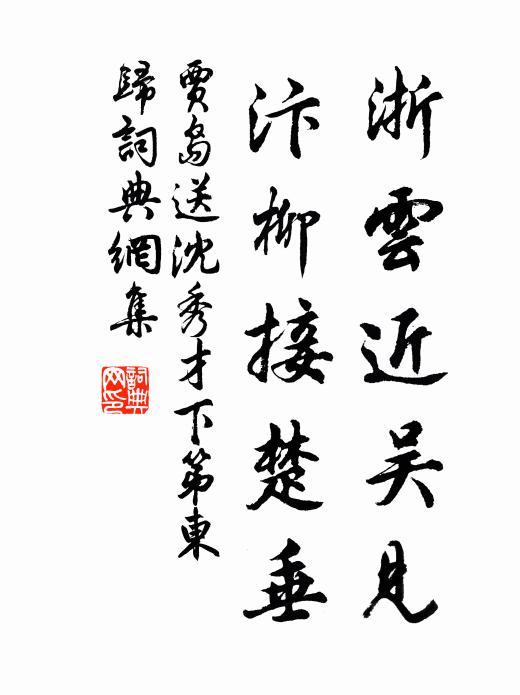 浙雲近吴見
汴柳接楚垂
賈島送沈秀才下第東
歸詞典網集
詞典
网印